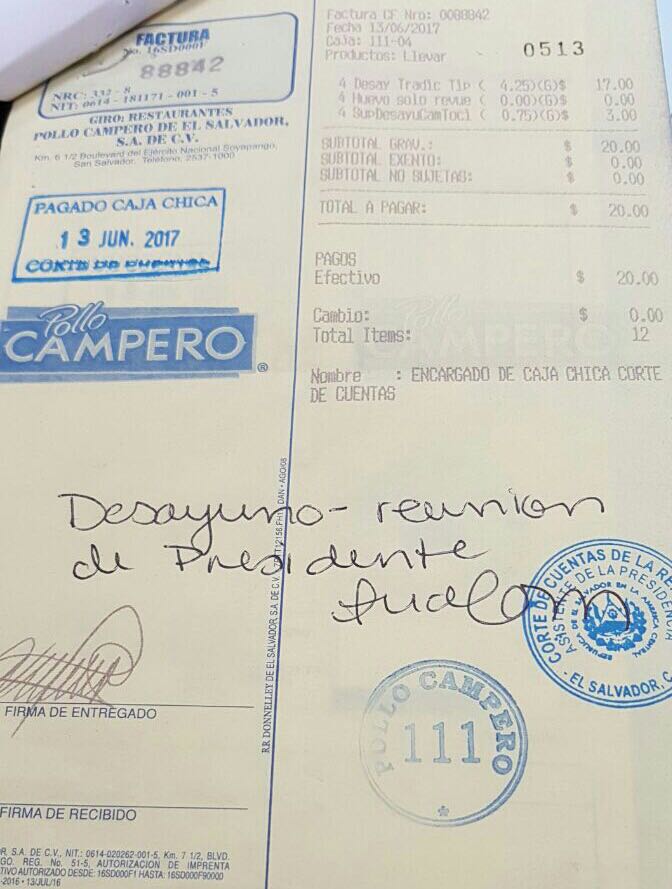 FACTURA
No. 16SD000F
88842
NRC: 332 - 8
NIT: 0614 - 181171 - 001 - 5
GIRO: RESTAURANTES
POLLO CAMPERO DE EL SALVADOR,
S.A. DE C.V.
Km. 6 1/2 Boulevard del Ejército Nacional Soyapango,
San Salvador. Teléfono, 2537-1000
PAGADO CAJA CHICA
13 JUN. 2017
CORTE DE CUENTAS
Pollo
CAMPERO®
Factura CF Nro: 0088842
Fecha 13/06/2017
Caja: 111-04
Productos: Llevar
0513
4 Desay Tradic Tip ( 4.25)(G)$ 17.00
4 Huevo solo revue ( 0.00)(G)$ 0.00
4 SupDesayuCamToci ( 0.75)(G)$ 3.00
SUBTOTAL GRAV.: $ 20.00
SUBTOTAL EXENTO: $ 0.00
SUBTOTAL NO SUJETAS: $ 0.00
TOTAL A PAGAR: $ 20.00
PAGOS
Efectivo $ 20.00
Cambio: $ 0.00
Total Items: 12
Nombre : ENCARGADO DE CAJA CHICA CORTE
DE CUENTAS
Desayuno - reunion
de Presidente
CORTE DE CUENTAS DE LA RE
ASISTENTE DE LA PRESIDENCIA
REPUBLICA DE EL SALVADOR EN LA AMERICA CENTRAL
- EL SALVADOR, C.
POLLO CAMPERO
111
FIRMA DE ENTREGADO
FIRMA DE RECIBIDO
R.R DONNELLEY DE EL SALVADOR, S.A. DE C.V.
R, S.A. DE C.V., NIT.: 0614-020262-001-5, Km. 7 1/2, BLVD.
GO. REG. No. 51-5, AUTORIZACION DE IMPRENTA
TIVO AUTORIZADO DESDE: 16SD000F1 HASTA: 16SD000F90000
-2016 • 13/JUL/16